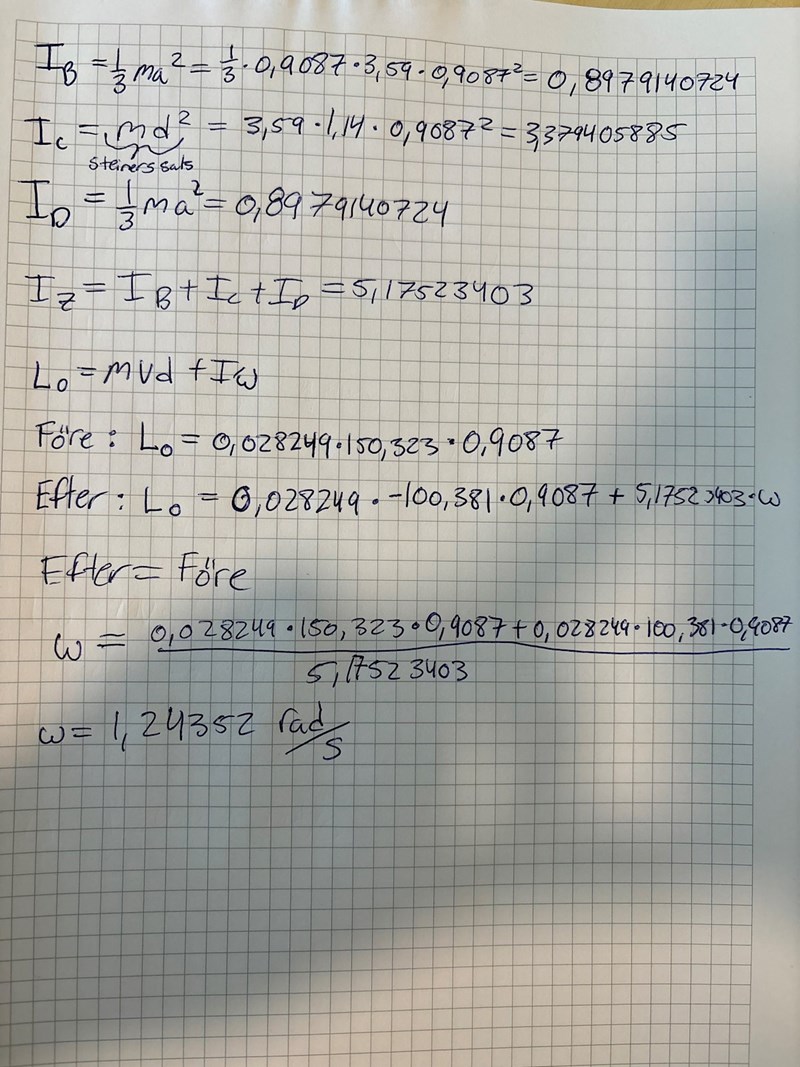 I_B = 1/3 ma² = 1/3 · 0,9087 · 3,59 · 0,9087² = 0,8979140724
I_C = md² = 3,59 · 1,14 · 0,9087² = 3,379405885
Steiners sats
I_D = 1/3 ma² = 0,8979140724
I_Z = I_B + I_C + I_D = 5,17523403
L_0 = mvd + Iω
Före : L_0 = 0,028249 · 150,323 · 0,9087
Efter : L_0 = 0,028249 · -100,381 · 0,9087 + 5,17523403 · ω
Efter = Före
ω = 0,028249 · 150,323 · 0,9087 + 0,028249 · 100,381 · 0,9087
5,17523403
ω = 1,24352 rad/s